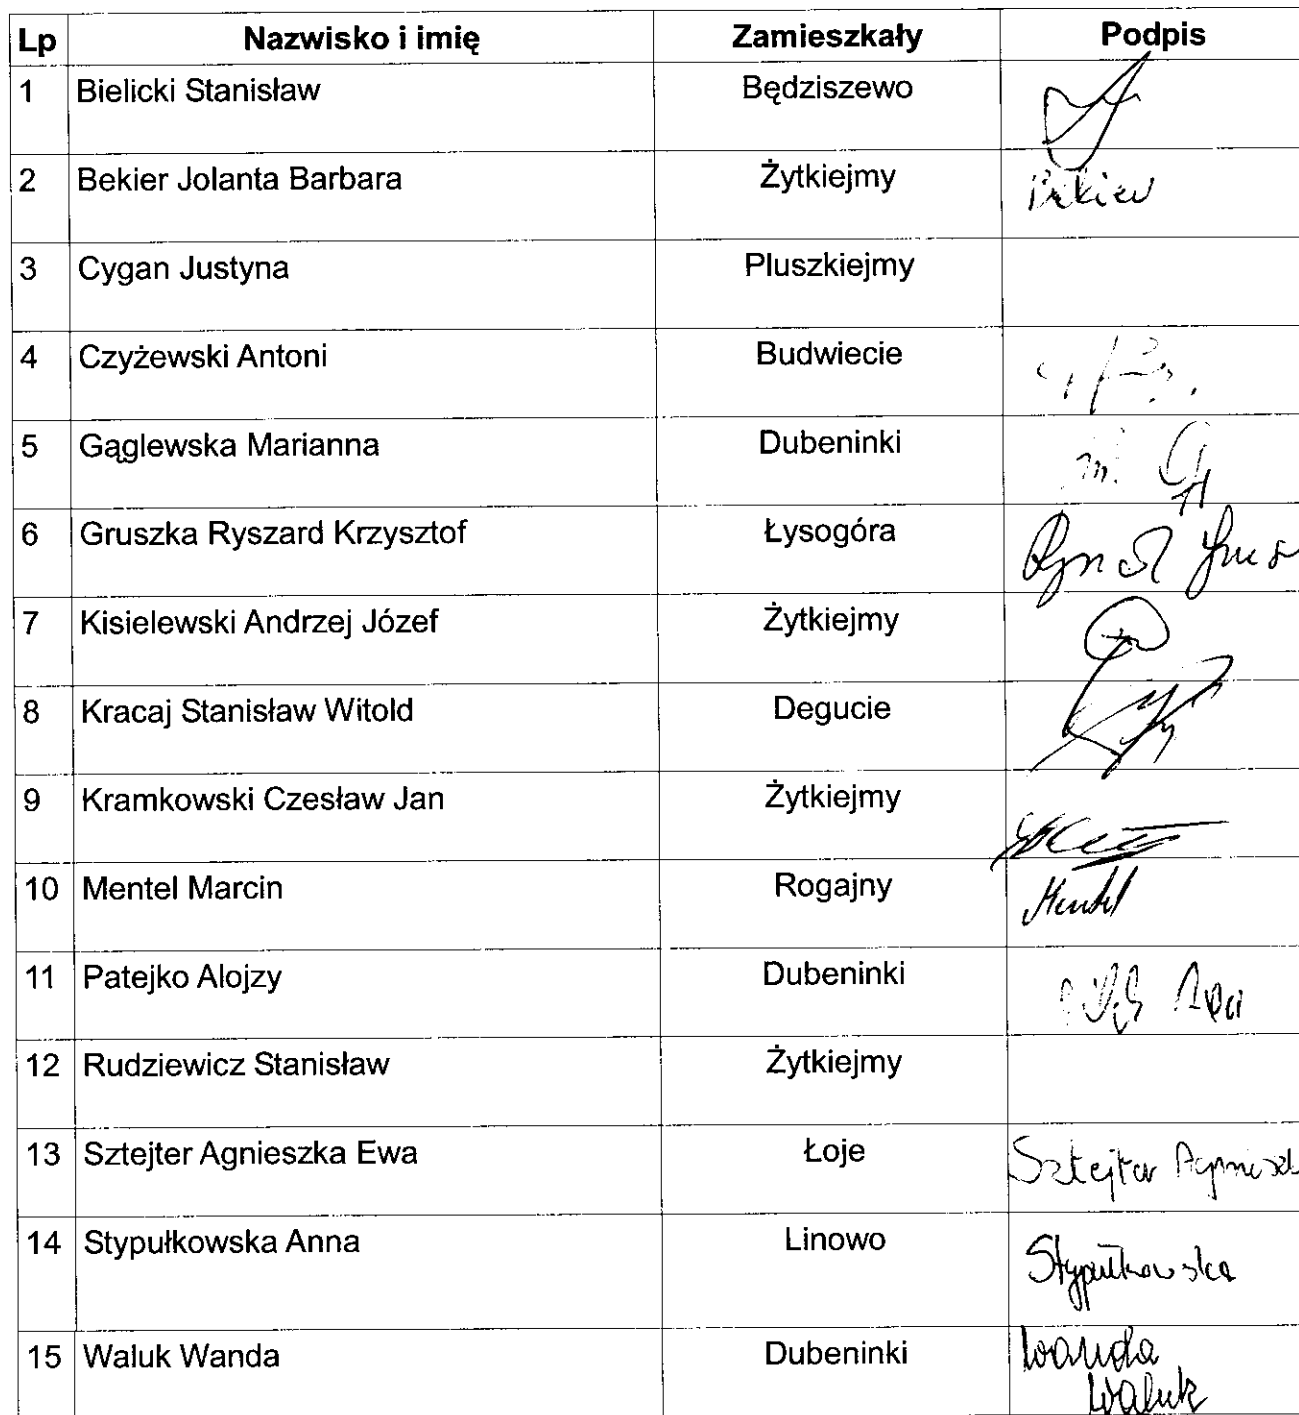 Lp Nazwisko i imię Zamieszkały Podpis
1 Bielicki Stanisław Będziszewo
2 Bekier Jolanta Barbara Żytkiejmy Bekier
3 Cygan Justyna Pluszkiejmy
4 Czyżewski Antoni Budwiecie
5 Gąglewska Marianna Dubeninki m. G
6 Gruszka Ryszard Krzysztof Łysogóra
7 Kisielewski Andrzej Józef Żytkiejmy
8 Kracaj Stanisław Witold Degucie
9 Kramkowski Czesław Jan Żytkiejmy
10 Mentel Marcin Rogajny Mentel
11 Patejko Alojzy Dubeninki
12 Rudziewicz Stanisław Żytkiejmy
13 Sztejter Agnieszka Ewa Łoje Sztejter Agnieszk
14 Stypułkowska Anna Linowo Stypułkowska
15 Waluk Wanda Dubeninki Wanda
Waluk